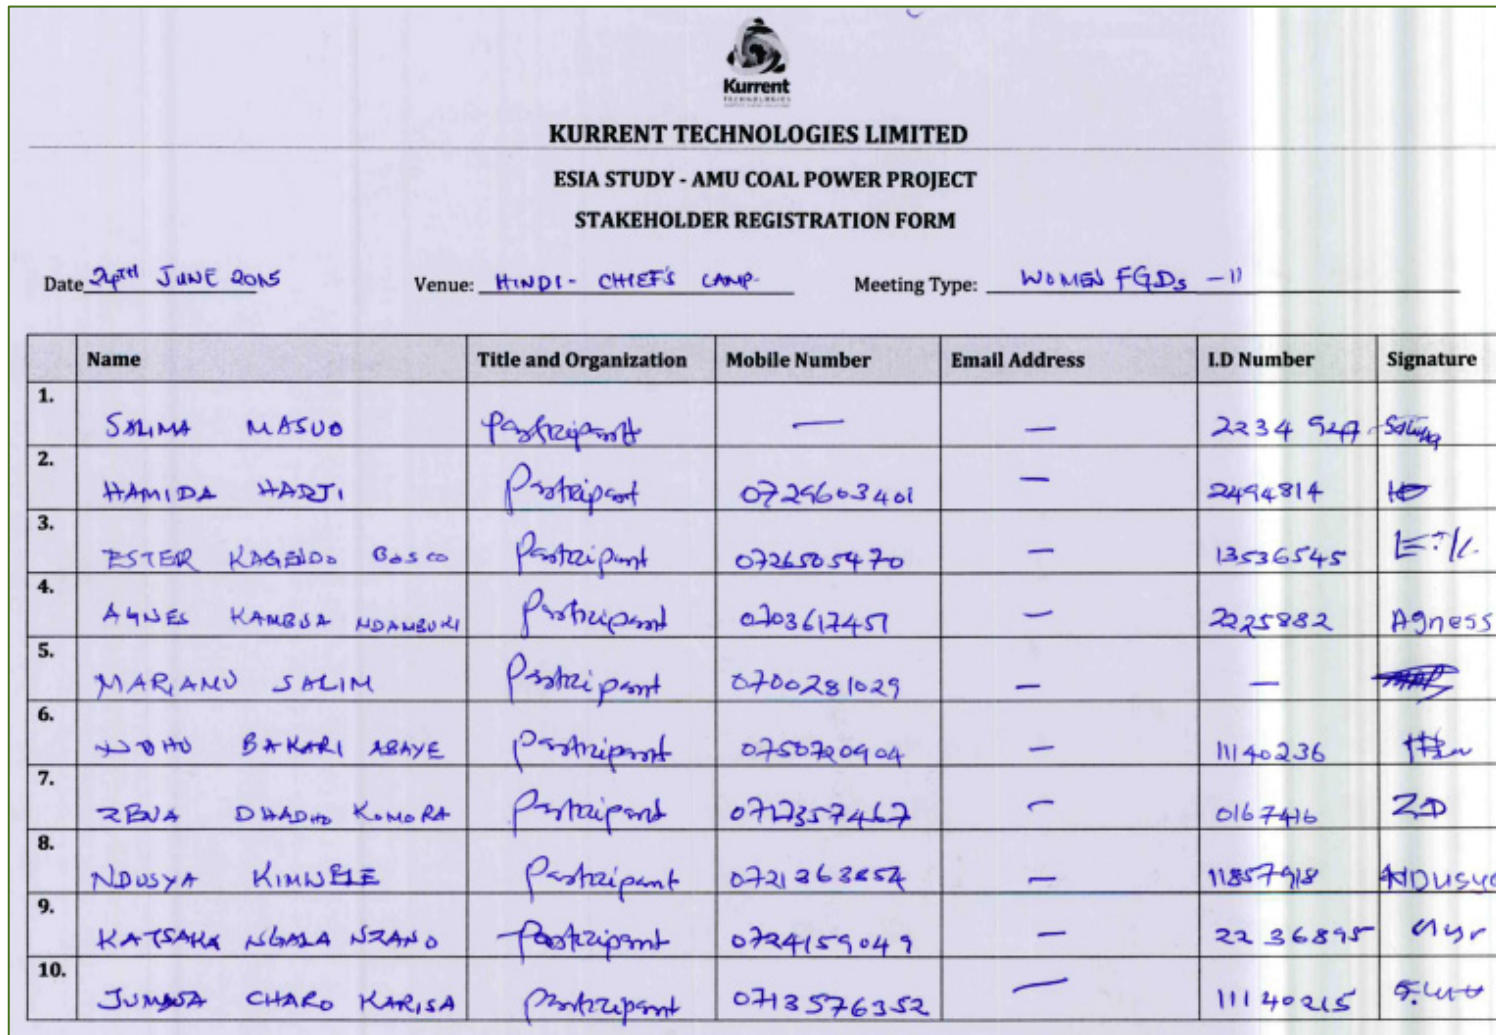 Kurrent
TECHNOLOGIES
KURRENT TECHNOLOGIES LIMITED
ESIA STUDY - AMU COAL POWER PROJECT
STAKEHOLDER REGISTRATION FORM
Date 24TH JUNE 2015 Venue: HINDI - CHIEF'S CAMP. Meeting Type: WOMEN FGDs - 11
Name Title and Organization Mobile Number Email Address I.D Number Signature
1. SALIMA MASUO Participant — — 2234 Salima
2. HAMIDA HARJI Participant 0729603401 — 2494814
3. ESTER KAGENDO BOSCO Participant 0726505470 — 13536545
4. AGNES KAMBUA NDAMBUKI Participant 0703617451 — 2225882 Agness
5. MARIAMU SALIM Participant 0700281029 — —
6. BAKARI ABAYE Participant 0750720904 — 11140236
7. ZENA DHADHO KOMORA Participant 0717357467 — 0167416 ZD
8. NDUSYA KIMWELE Participant 0721363854 — 11857918 NDUSYA
9. KATSAKA NGALA NZANO Participant 0724159049 — 2236895
10. JUMWA CHARO KARISA Participant 0713576352 — 11140215